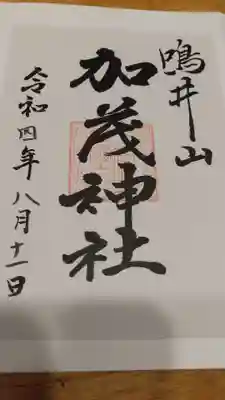 鴫井山
加茂神社
令和四年八月十一日